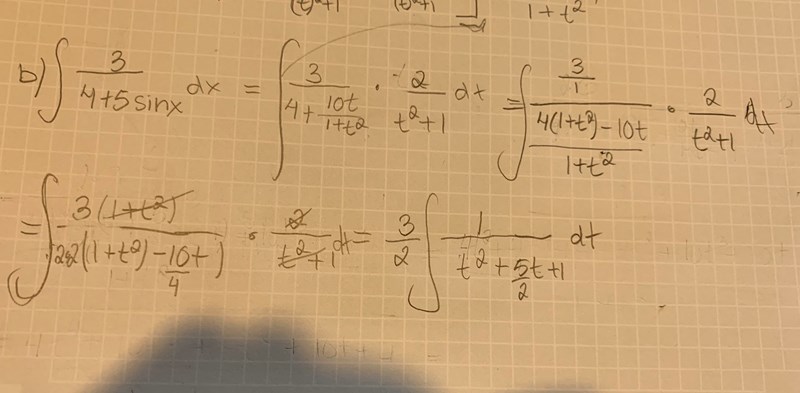 (t)²+1 (t)²+1 1+t²
b) ∫ 3/(4+5sinx) dx = ∫ 3/(4+10t/(1+t²)) · 2/(t²+1) dt = ∫ (3/1)/((4(1+t²)-10t)/(1+t²)) · 2/(t²+1) dt
= ∫ 3(1+t²)/(2·2((1+t²)-10t/4)) · 2/(t²+1) dt = 3/2 ∫ 1/(t²+5t/2+1) dt